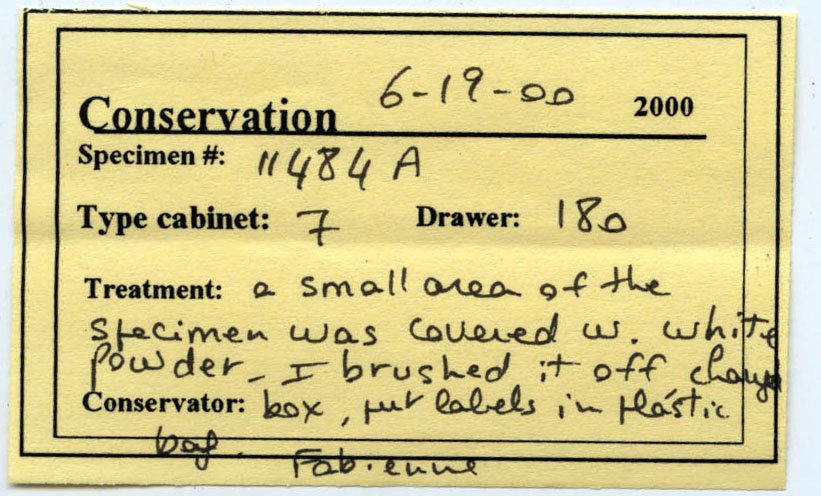 6-19-00
Conservation 2000
Specimen #: 11484 A
Type cabinet: 7 Drawer: 180
Treatment: a small area of the
specimen was covered w. white
powder_ I brushed it off change
Conservator: box, put labels in plastic
bag.
Fabienne